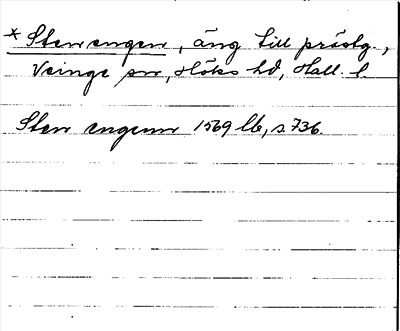 * Stenengen, äng till prästg.,
Veinge sn, Höks hd, Hall. l.
Sten engenn 1569 lb, s. 736.